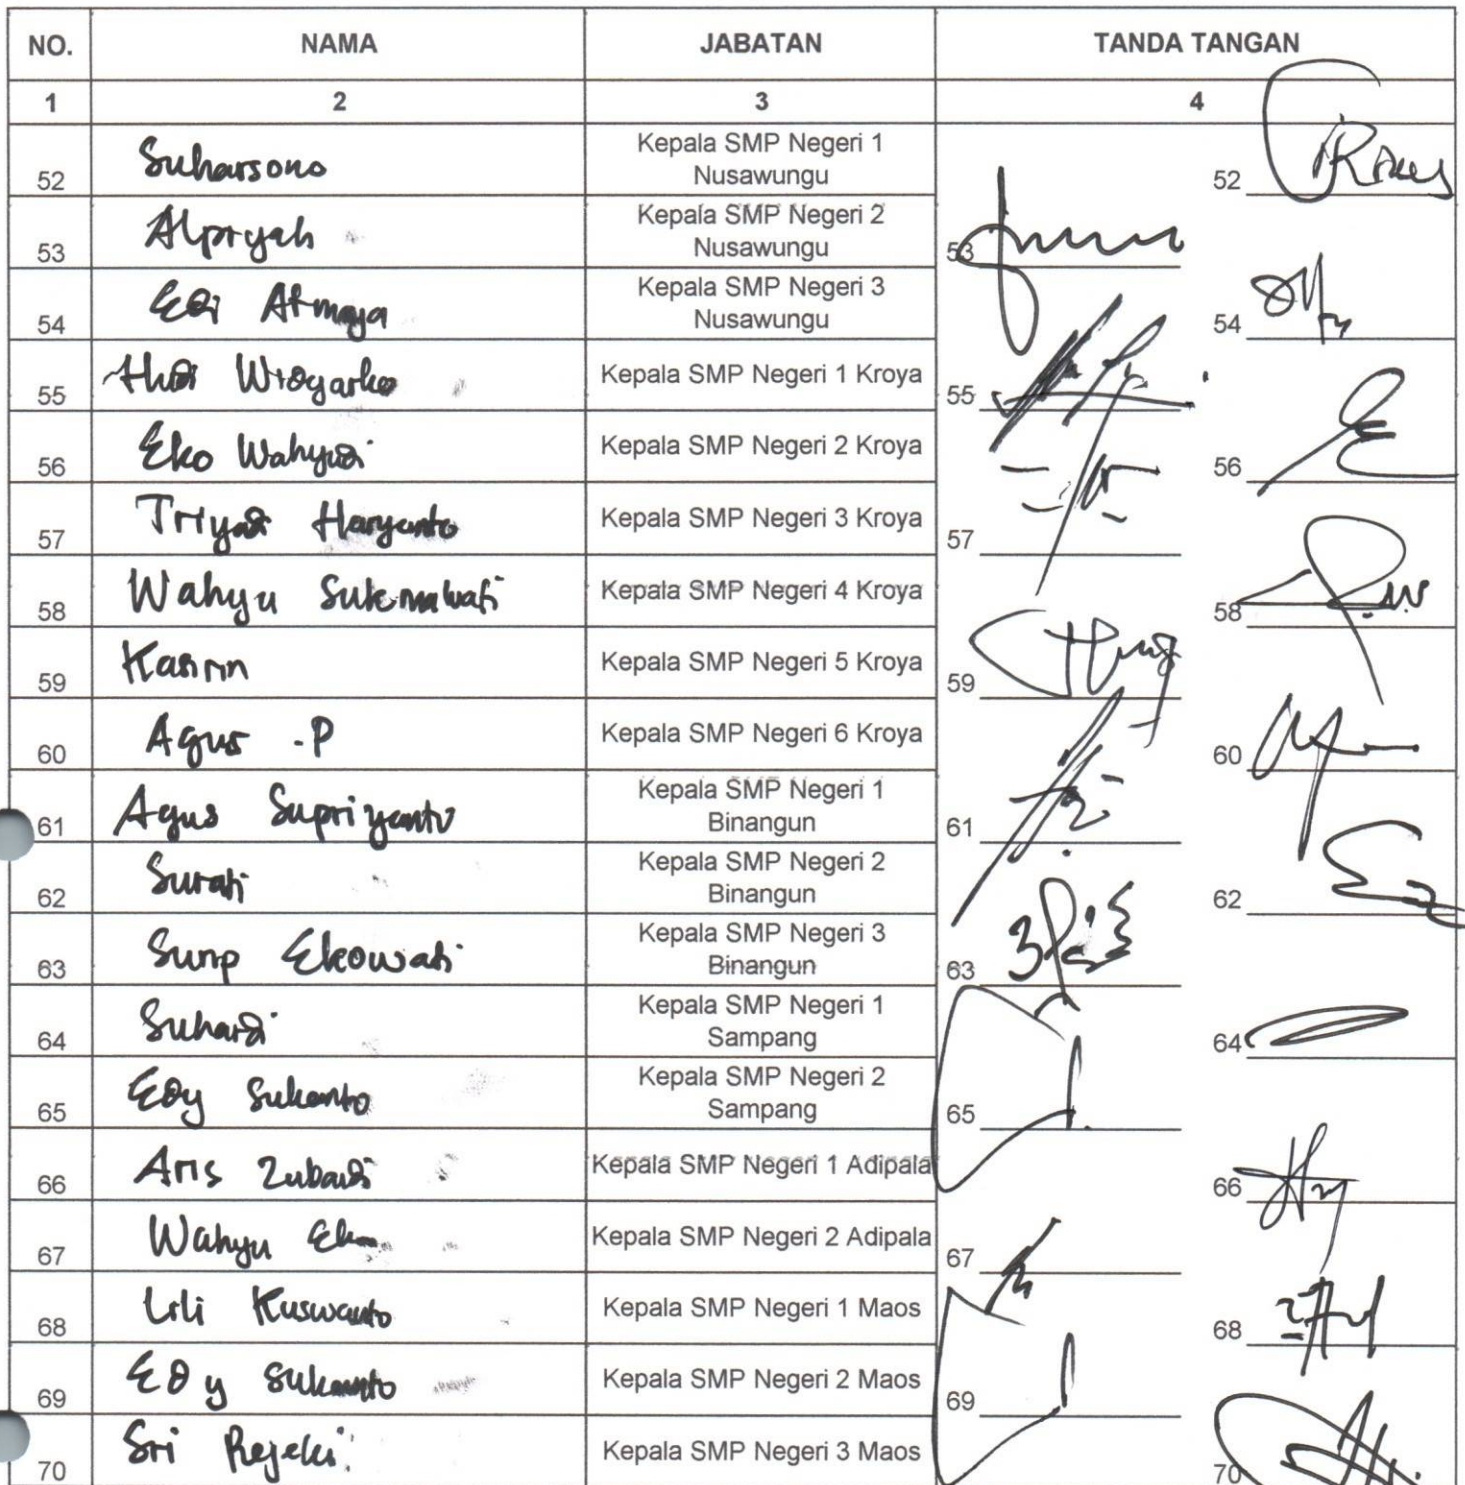 NO. NAMA JABATAN TANDA TANGAN
1 2 3 4
52 Suharsono Kepala SMP Negeri 1 Nusawungu 52
53 Alpiyah Kepala SMP Negeri 2 Nusawungu 53
54 Edi Atmaja Kepala SMP Negeri 3 Nusawungu 54
55 Kepala SMP Negeri 1 Kroya 55
56 Eko Wahyudi Kepala SMP Negeri 2 Kroya 56
57 Triyadi Haryanto Kepala SMP Negeri 3 Kroya 57
58 Wahyu Sukmawati Kepala SMP Negeri 4 Kroya 58
59 Kasirin Kepala SMP Negeri 5 Kroya 59
60 Agus .P Kepala SMP Negeri 6 Kroya 60
61 Agus Supriyanto Kepala SMP Negeri 1 Binangun 61
62 Surati Kepala SMP Negeri 2 Binangun 62
63 Ekowati Kepala SMP Negeri 3 Binangun 63
64 Suhardi Kepala SMP Negeri 1 Sampang 64
65 Edy Sukanto Kepala SMP Negeri 2 Sampang 65
66 Aris Zubaidi Kepala SMP Negeri 1 Adipala 66
67 Wahyu Eko Kepala SMP Negeri 2 Adipala 67
68 Lili Kuswanto Kepala SMP Negeri 1 Maos 68
69 Edy Sukamto Kepala SMP Negeri 2 Maos 69
70 Sri Rejeki Kepala SMP Negeri 3 Maos 70